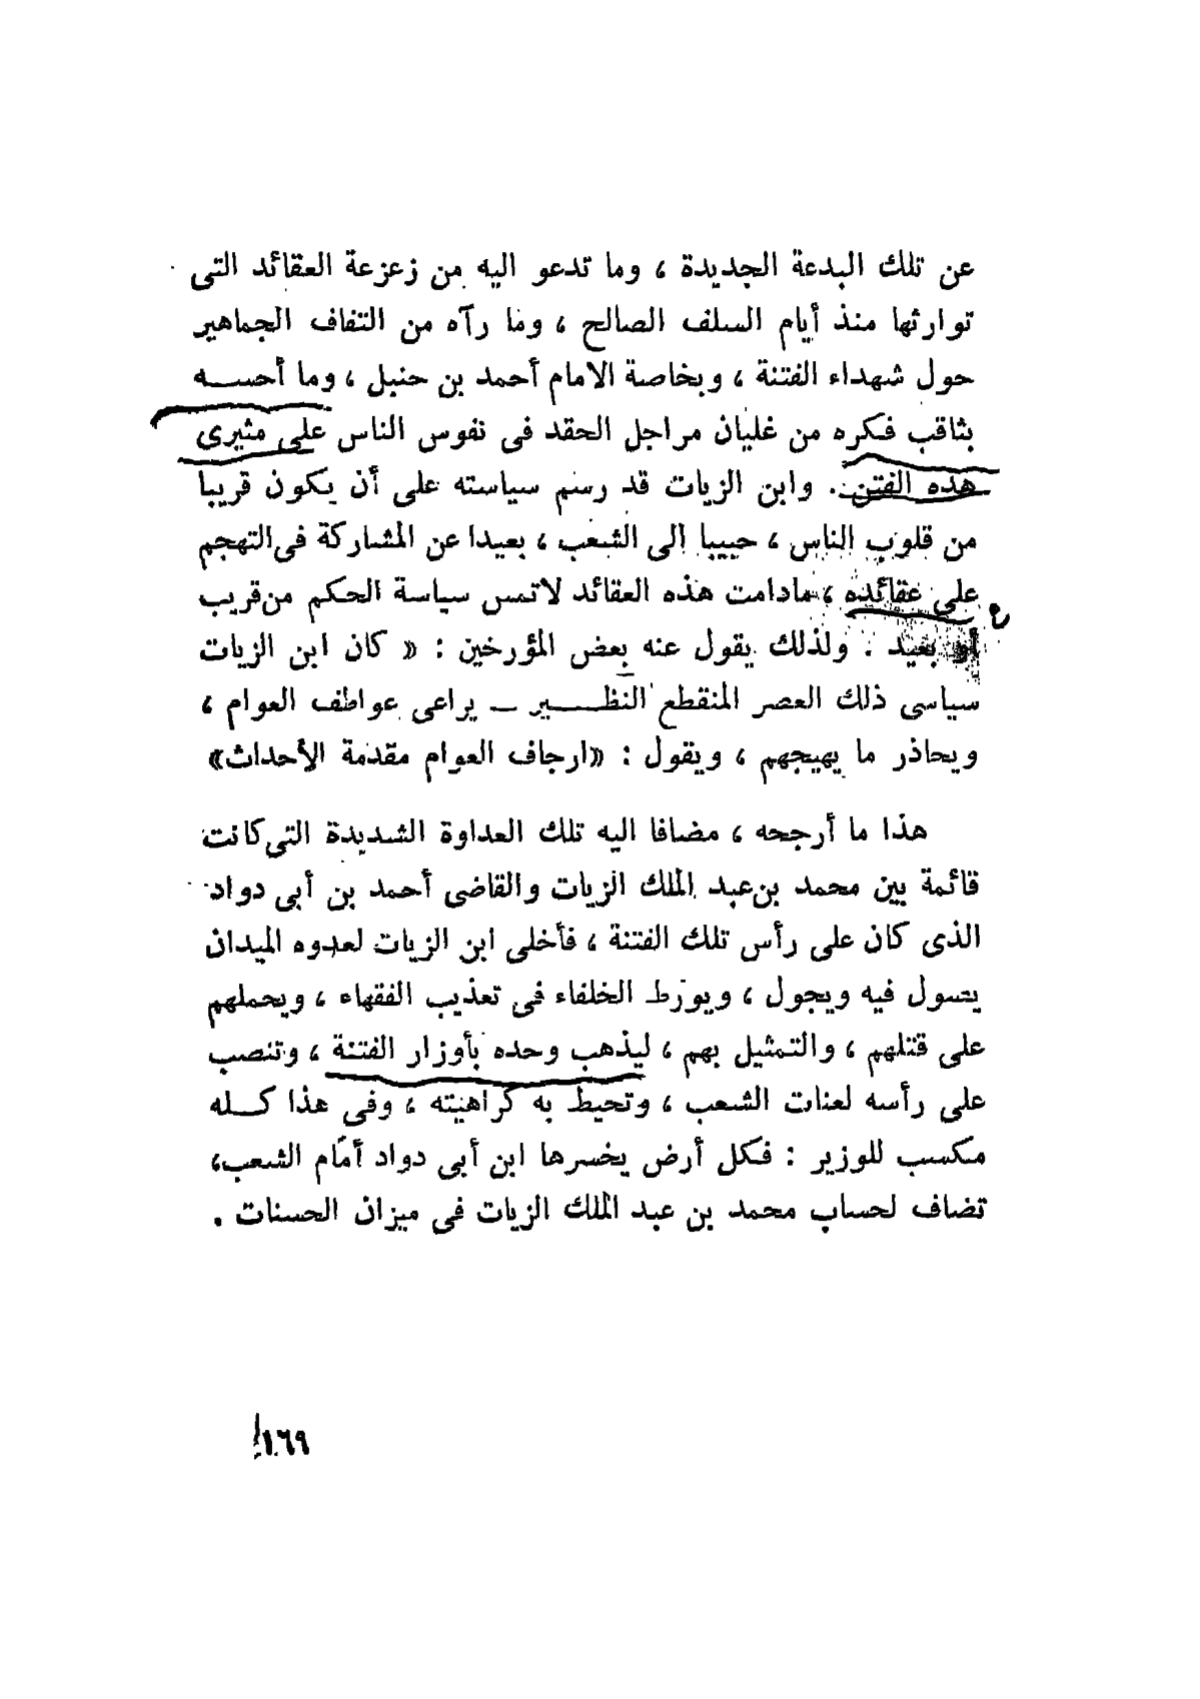 عن تلك البدعة الجديدة ، وما تدعو اليه من زعزعة العقائد التى
توارثها منذ أيام السلف الصالح ، وما رآه من التفاف الجماهير
حول شهداء الفتنة ، وبخاصة الامام أحمد بن حنبل ، وما أحســه
بثاقب فكره من غليان مراجل الحقد فى نفوس الناس على مثيرى
هذه الفتن . وابن الزيات قد رسم سياسته على أن يكون قريبا
من قلوب الناس ، حبيبا الى الشعب ، بعيدا عن المشاركة فى التهجم
على عقائده ، مادامت هذه العقائد لاتمس سياسة الحكم من قريب
أو بعيد . ولذلك يقول عنه بعض المؤرخين : « كان ابن الزيات
سياسى ذلك العصر المنقطع النظــــير ــ يراعى عواطف العوام ،
ويحاذر ما يهيجهم ، ويقول : «ارجاف العوام مقدمة الأحداث»
هذا ما أرجحه ، مضافا اليه تلك العداوة الشديدة التى كانت
قائمة بين محمد بن عبد الملك الزيات والقاضى أحمد بن أبى دواد
الذى كان على رأس تلك الفتنة ، فأخلى ابن الزيات لعدوه الميدان
يصول فيه ويجول ، ويورط الخلفاء فى تعذيب الفقهاء ، ويحملهم
على قتلهم ، والتمثيل بهم ، ليذهب وحده بأوزار الفتنة ، وتنصب
على رأسه لعنات الشعب ، وتحيط به كراهيته ، وفى هذا كــله
مكسب للوزير : فكل أرض يخسرها ابن أبى دواد أمام الشعب،
تضاف لحساب محمد بن عبد الملك الزيات فى ميزان الحسنات .
١٦٩